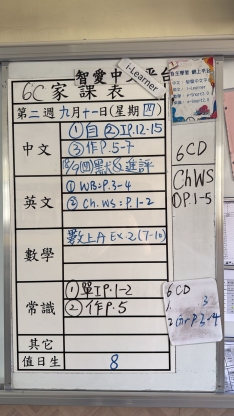 智愛中 平台
i-Learner
6C家課表
第二週 九月十一日(星期四)
中文
①自②IP.12-15
③作P.5-7
15/9(四)默&進評
英文
① WB: P.3-4
② Ch.WS: P.1-2
數學
數上A Ex.2(7-10)
常識
①單IP.1-2
②作P.5
其它
值日生
8
6CD
ChWS
P.1-5
6CD